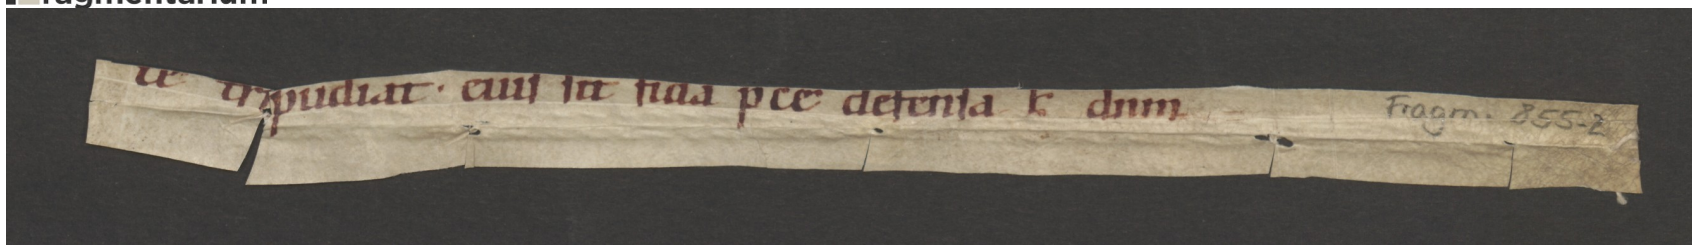 fragmentarium
te tripudiat· eius sit fida p ce defensa k dnm
Fragm. 855-2